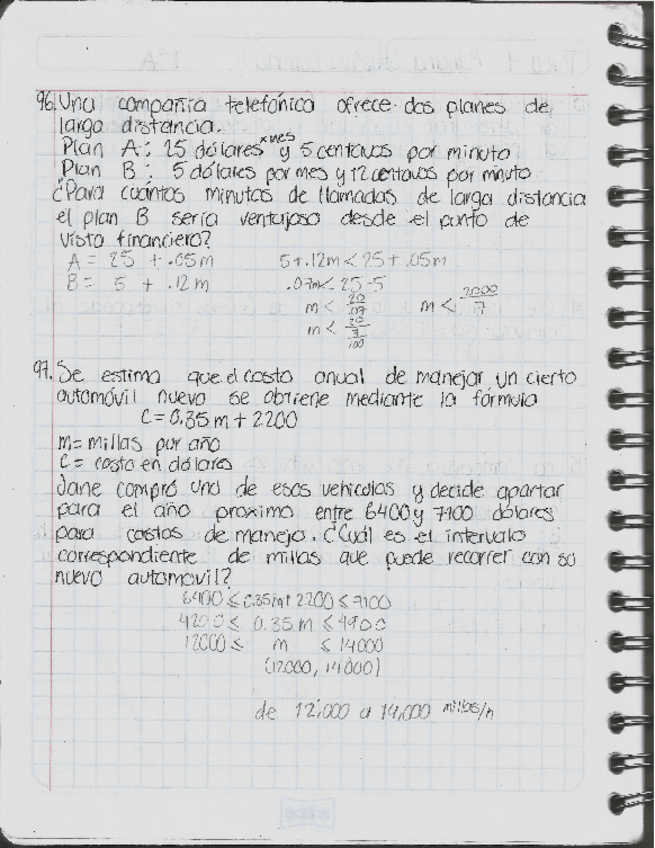 96. Una compañia telefónica ofrece dos planes de
larga distancia.
Plan A: 25 dólares x mes y 5 centavos por minuto
Plan B: 5 dólares por mes y 12 centavos por minuto
¿Para cuántos minutos de llamadas de larga distancia
el plan B sería ventajoso desde el punto de
vista financiero?
A = 25 + .05m     5+.12m < 25 + .05m
B = 5 + .12m     .07m < 25-5
m < 20/.07     m < 2000/7
m < 20/(7/100)
97. Se estima que el costo anual de manejar un cierto
automóvil nuevo se obtiene mediante la fórmula
C = 0.35m + 2200
m= millas por año
C= costo en dólares
Jane compró uno de esos vehiculos y decide apartar
para el año proximo entre 6400 y 7100 dólares
para costos de manejo. ¿Cuál es el intervalo
correspondiente de millas que puede recorrer con su
nuevo automovil?
6400 ≤ 0.35m+2200 ≤ 7100
4200 ≤ 0.35m ≤ 4900
12000 ≤ m ≤ 14000
(12000, 14000)
de 12,000 a 14,000 millas/h
Scribe